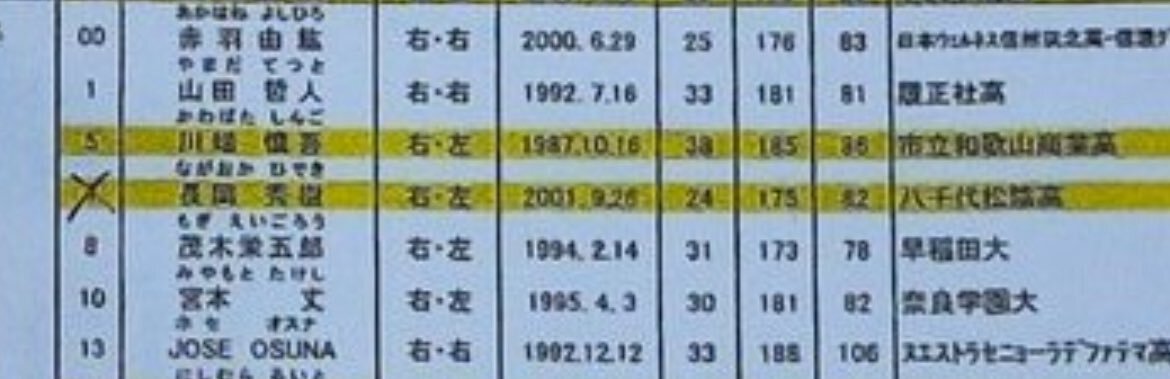 あかはね よしひろ
00 赤羽由紘 右・右 2000. 6.29 25 176 83 日本ウェルネス信州筑北高-信濃グ
やまだ てつと
1 山田 哲人 右・右 1992. 7.16 33 181 81 履正社高
かわばた しんご
5 川端 慎吾 右・左 1987.10.16 38 185 86 市立和歌山商業高
ながおか ひでき
長岡 秀樹 右・左 2001. 9.26 24 175 82 八千代松陰高
もぎ えいごろう
8 茂木栄五郎 右・左 1994. 2.14 31 173 78 早稲田大
みやもと たけし
10 宮本 丈 右・左 1995. 4. 3 30 181 82 奈良学園大
ホセ オスナ
13 JOSE OSUNA 右・右 1992.12.12 33 188 106 ヌエストラセニョーラデファテマ高
にしむら あいと